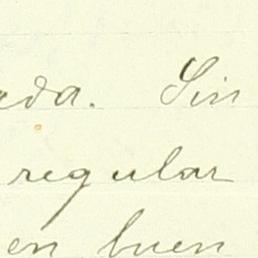 ada. Sin
regular
en buen